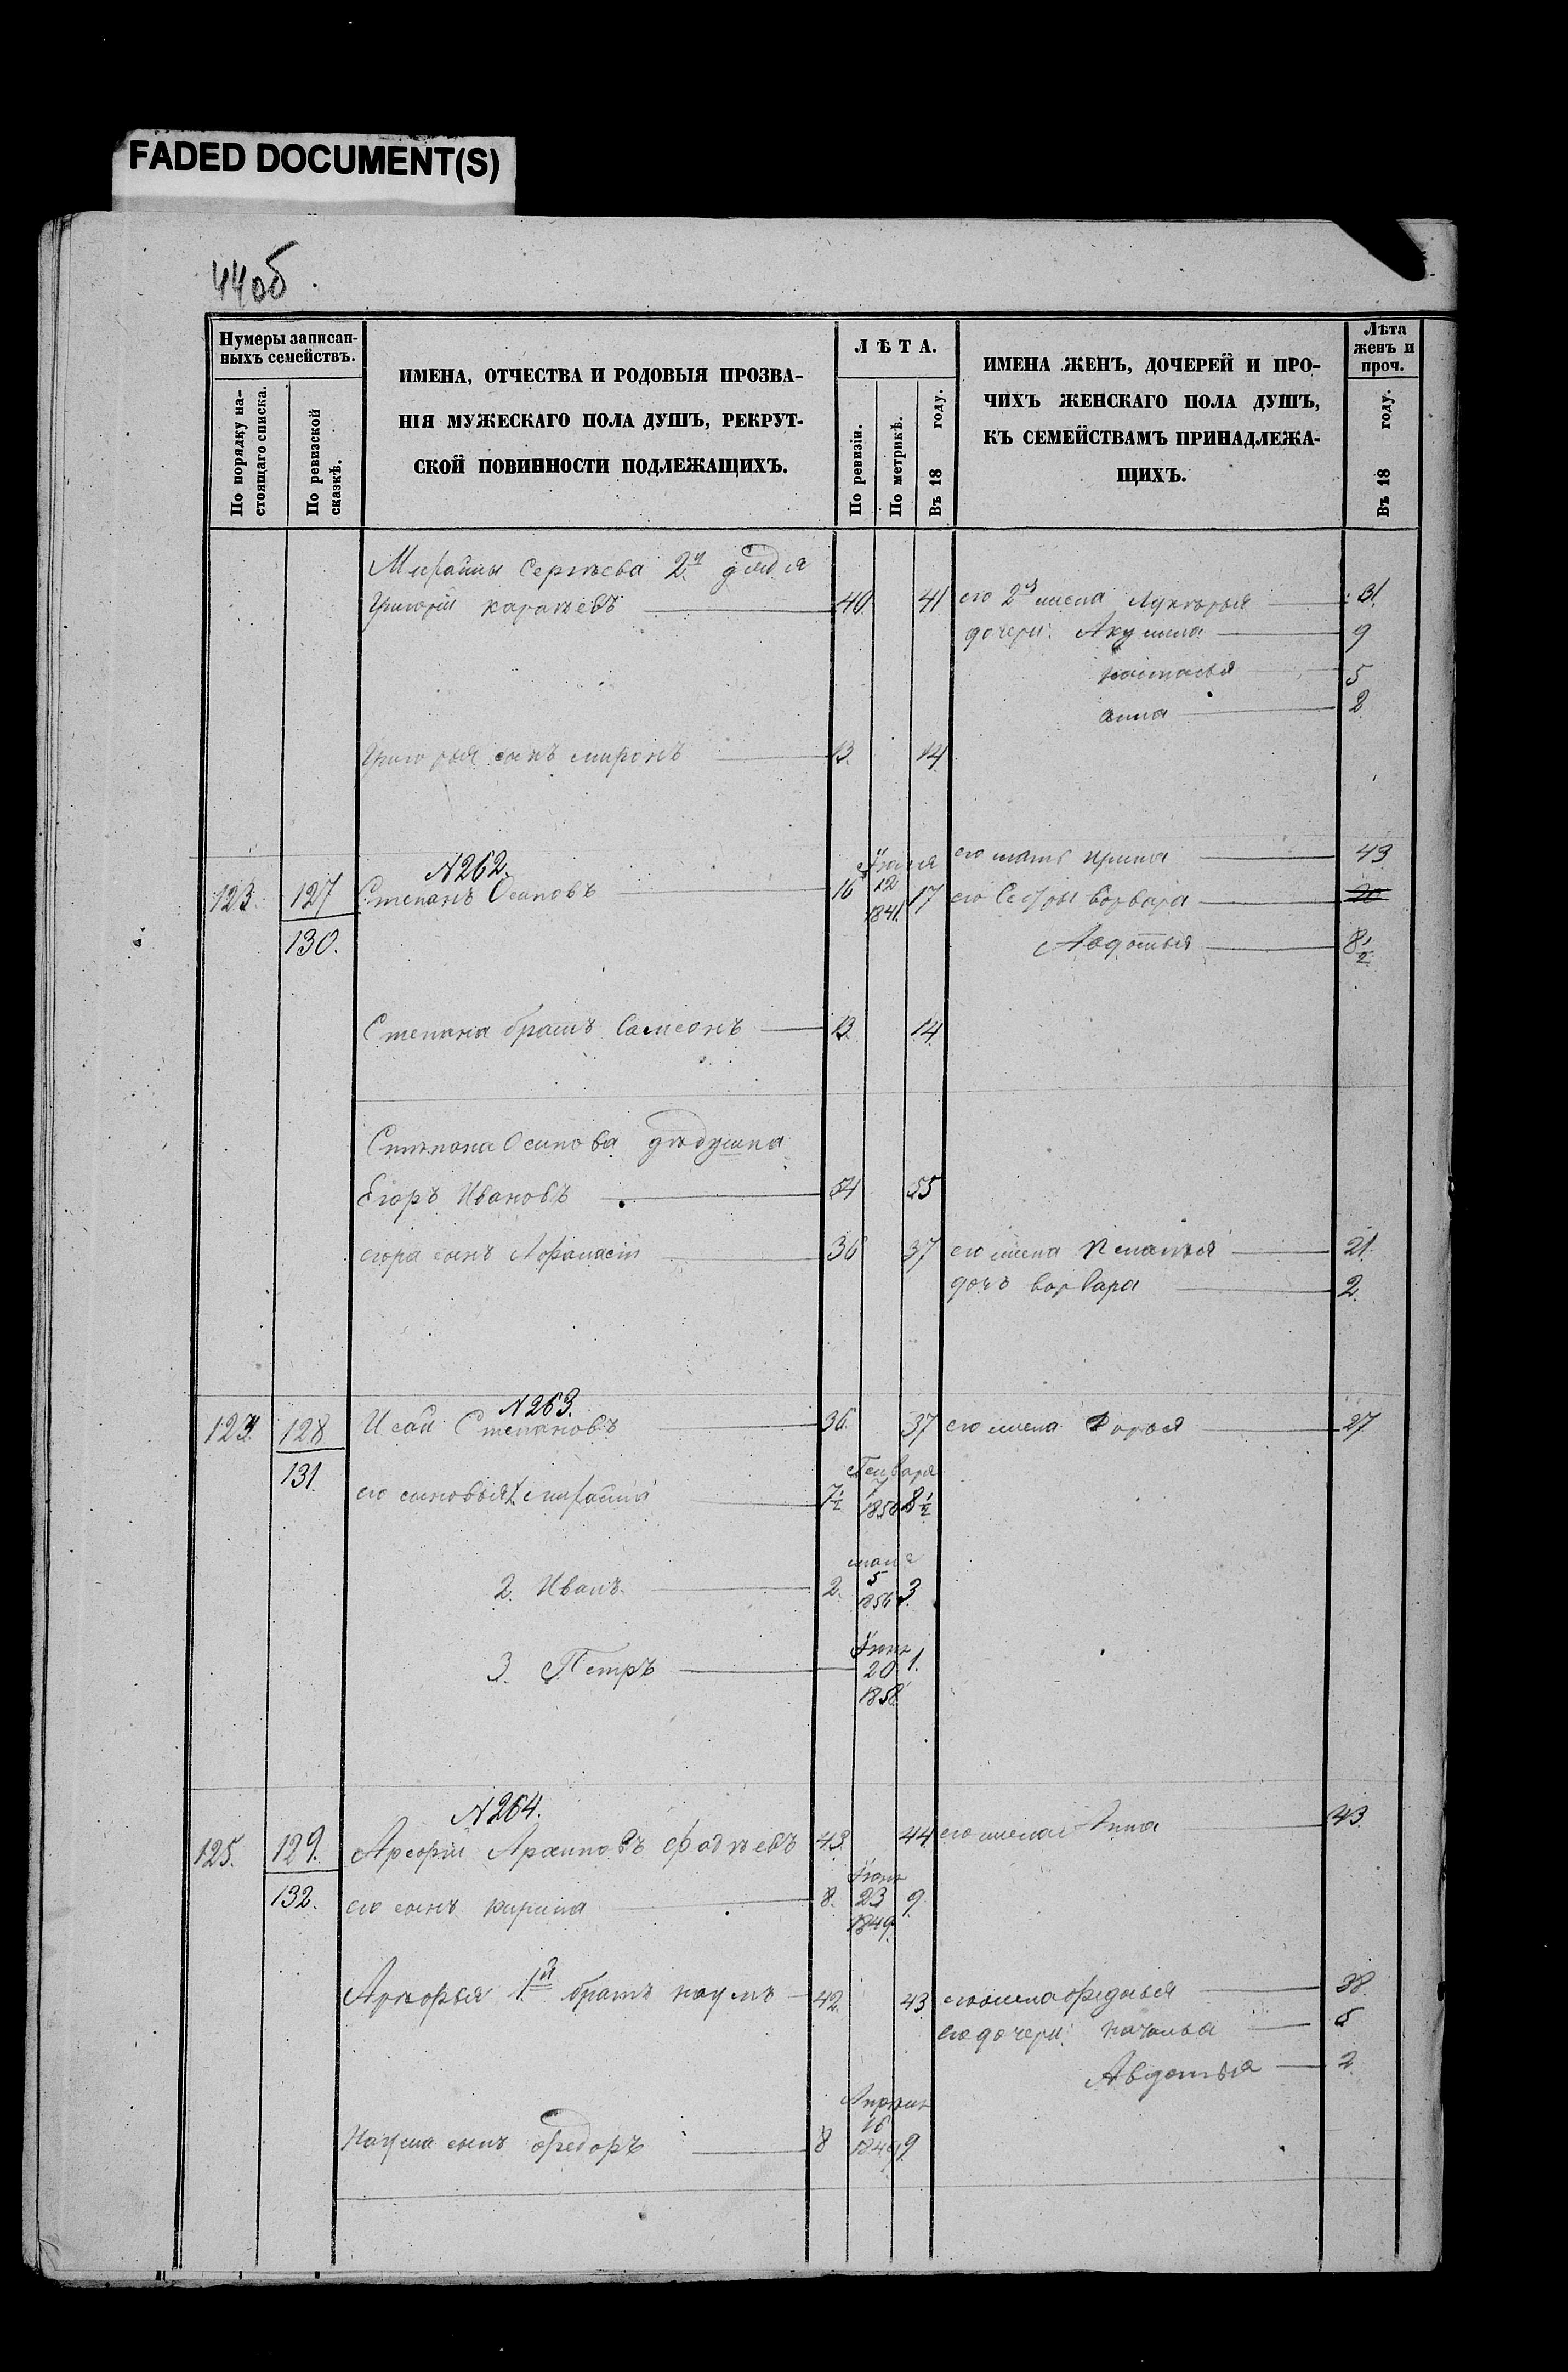 FADED DOCUMENT(S)
44об.
Нумеры записанныхъ семействъ.
По порядку настоящаго списка.
По ревизской сказкѣ.
ИМЕНА, ОТЧЕСТВА И РОДОВЫЯ ПРОЗВА-
НІЯ МУЖЕСКАГО ПОЛА ДУШЪ, РЕКРУТ-
СКОЙ ПОВИННОСТИ ПОДЛЕЖАЩИХЪ.
ЛѢТА.
По ревизіи.
По метрикѣ.
Въ 18 году.
ИМЕНА ЖЕНЪ, ДОЧЕРЕЙ И ПРО-
ЧИХЪ ЖЕНСКАГО ПОЛА ДУШЪ,
КЪ СЕМЕЙСТВАМЪ ПРИНАДЛЕЖА-
ЩИХЪ.
Лѣта
женъ и
проч.
Въ 18 году.
Сергѣева 2й дядя
Григорій 40 41 его 2я жена Лукерья 31.
дочери: Акулина 9
настасья 5
анна 2
Григорья сынъ миронъ 13. 14
его мать ирина 43
N262.
123. 127 Степанъ Осиповъ 16 12 1841. 17 его Сестры варвара 20
130. Авдотья 8 1/2
Степана братъ Самсонъ 13. 14.
Степана Осипова дѣдушка
Егоръ Ивановъ 54 55
егора сынъ Афанасій 36 37 его жена Пелагея 21.
дочь варвара 2.
N263.
124. 128 Исай Степановъ 36. 37 его жена Дарья 27
131. его сыновья 1. 7 1/2 Генваря 7 1850 8 1/2
2. Иванъ 2. мая 5 1856 3.
3. Петръ 20 1858 1.
N264.
125. 129. Архиповъ Фадѣевъ 43. 44 его жена Анна 43.
132. его сынъ кирила 8. 23 1849 9.
1й братъ наумъ 42. 43 его жена федосья 38.
его дочери: наталья 5
Авдотья 2
Наума сынъ федоръ 8 Апрѣля 16 1849 9.